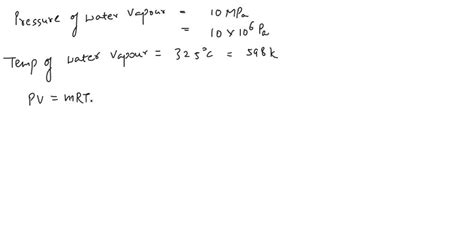 Pressure of water vapour = 10 MPa
= 10 × 10⁶ Pa
Temp of water vapour = 325°C = 598 k
PV = mRT.